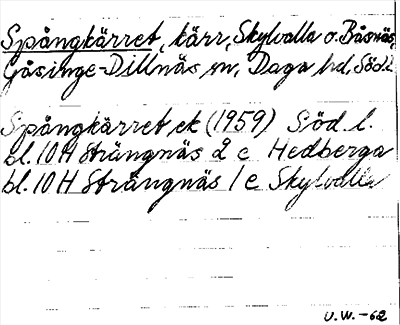 Spångkärret, kärr, Skylvalla o. Båsnäs,
Gåsinge-Dillnäs sn, Daga hd, Södl.
Spångkärret ek (1959) Söd. l.
bl. 10 H Strängnäs 2 e Hedberga
bl. 10 H Strängnäs 1 e Skylvalla
U.W. -62